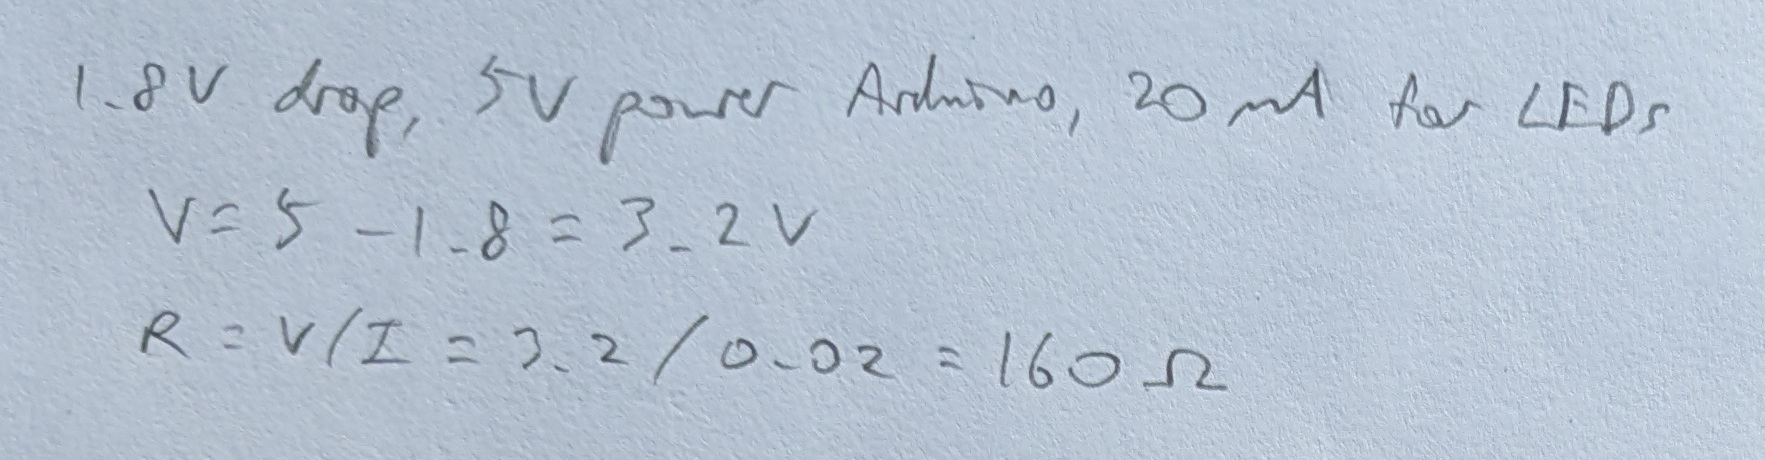 1.8V drop, 5V power Arduino, 20 mA for LEDs
V = 5 - 1.8 = 3.2V
R = V/I = 3.2/0.02 = 160 Ω